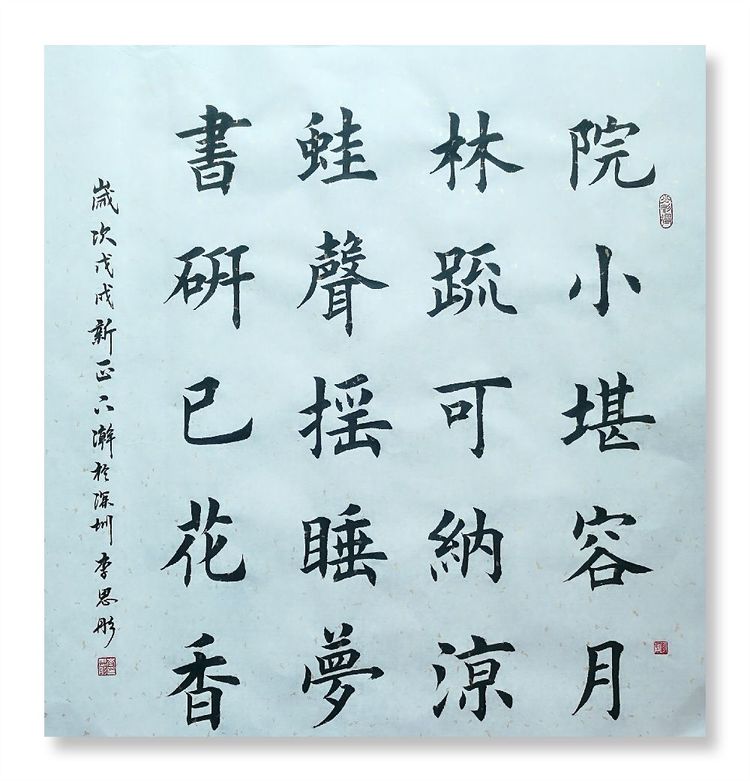 院小堪容月
林疏可納涼
蛙聲摇睡夢
書研已花香
歲次戊戌新正下澣於深圳李思彤